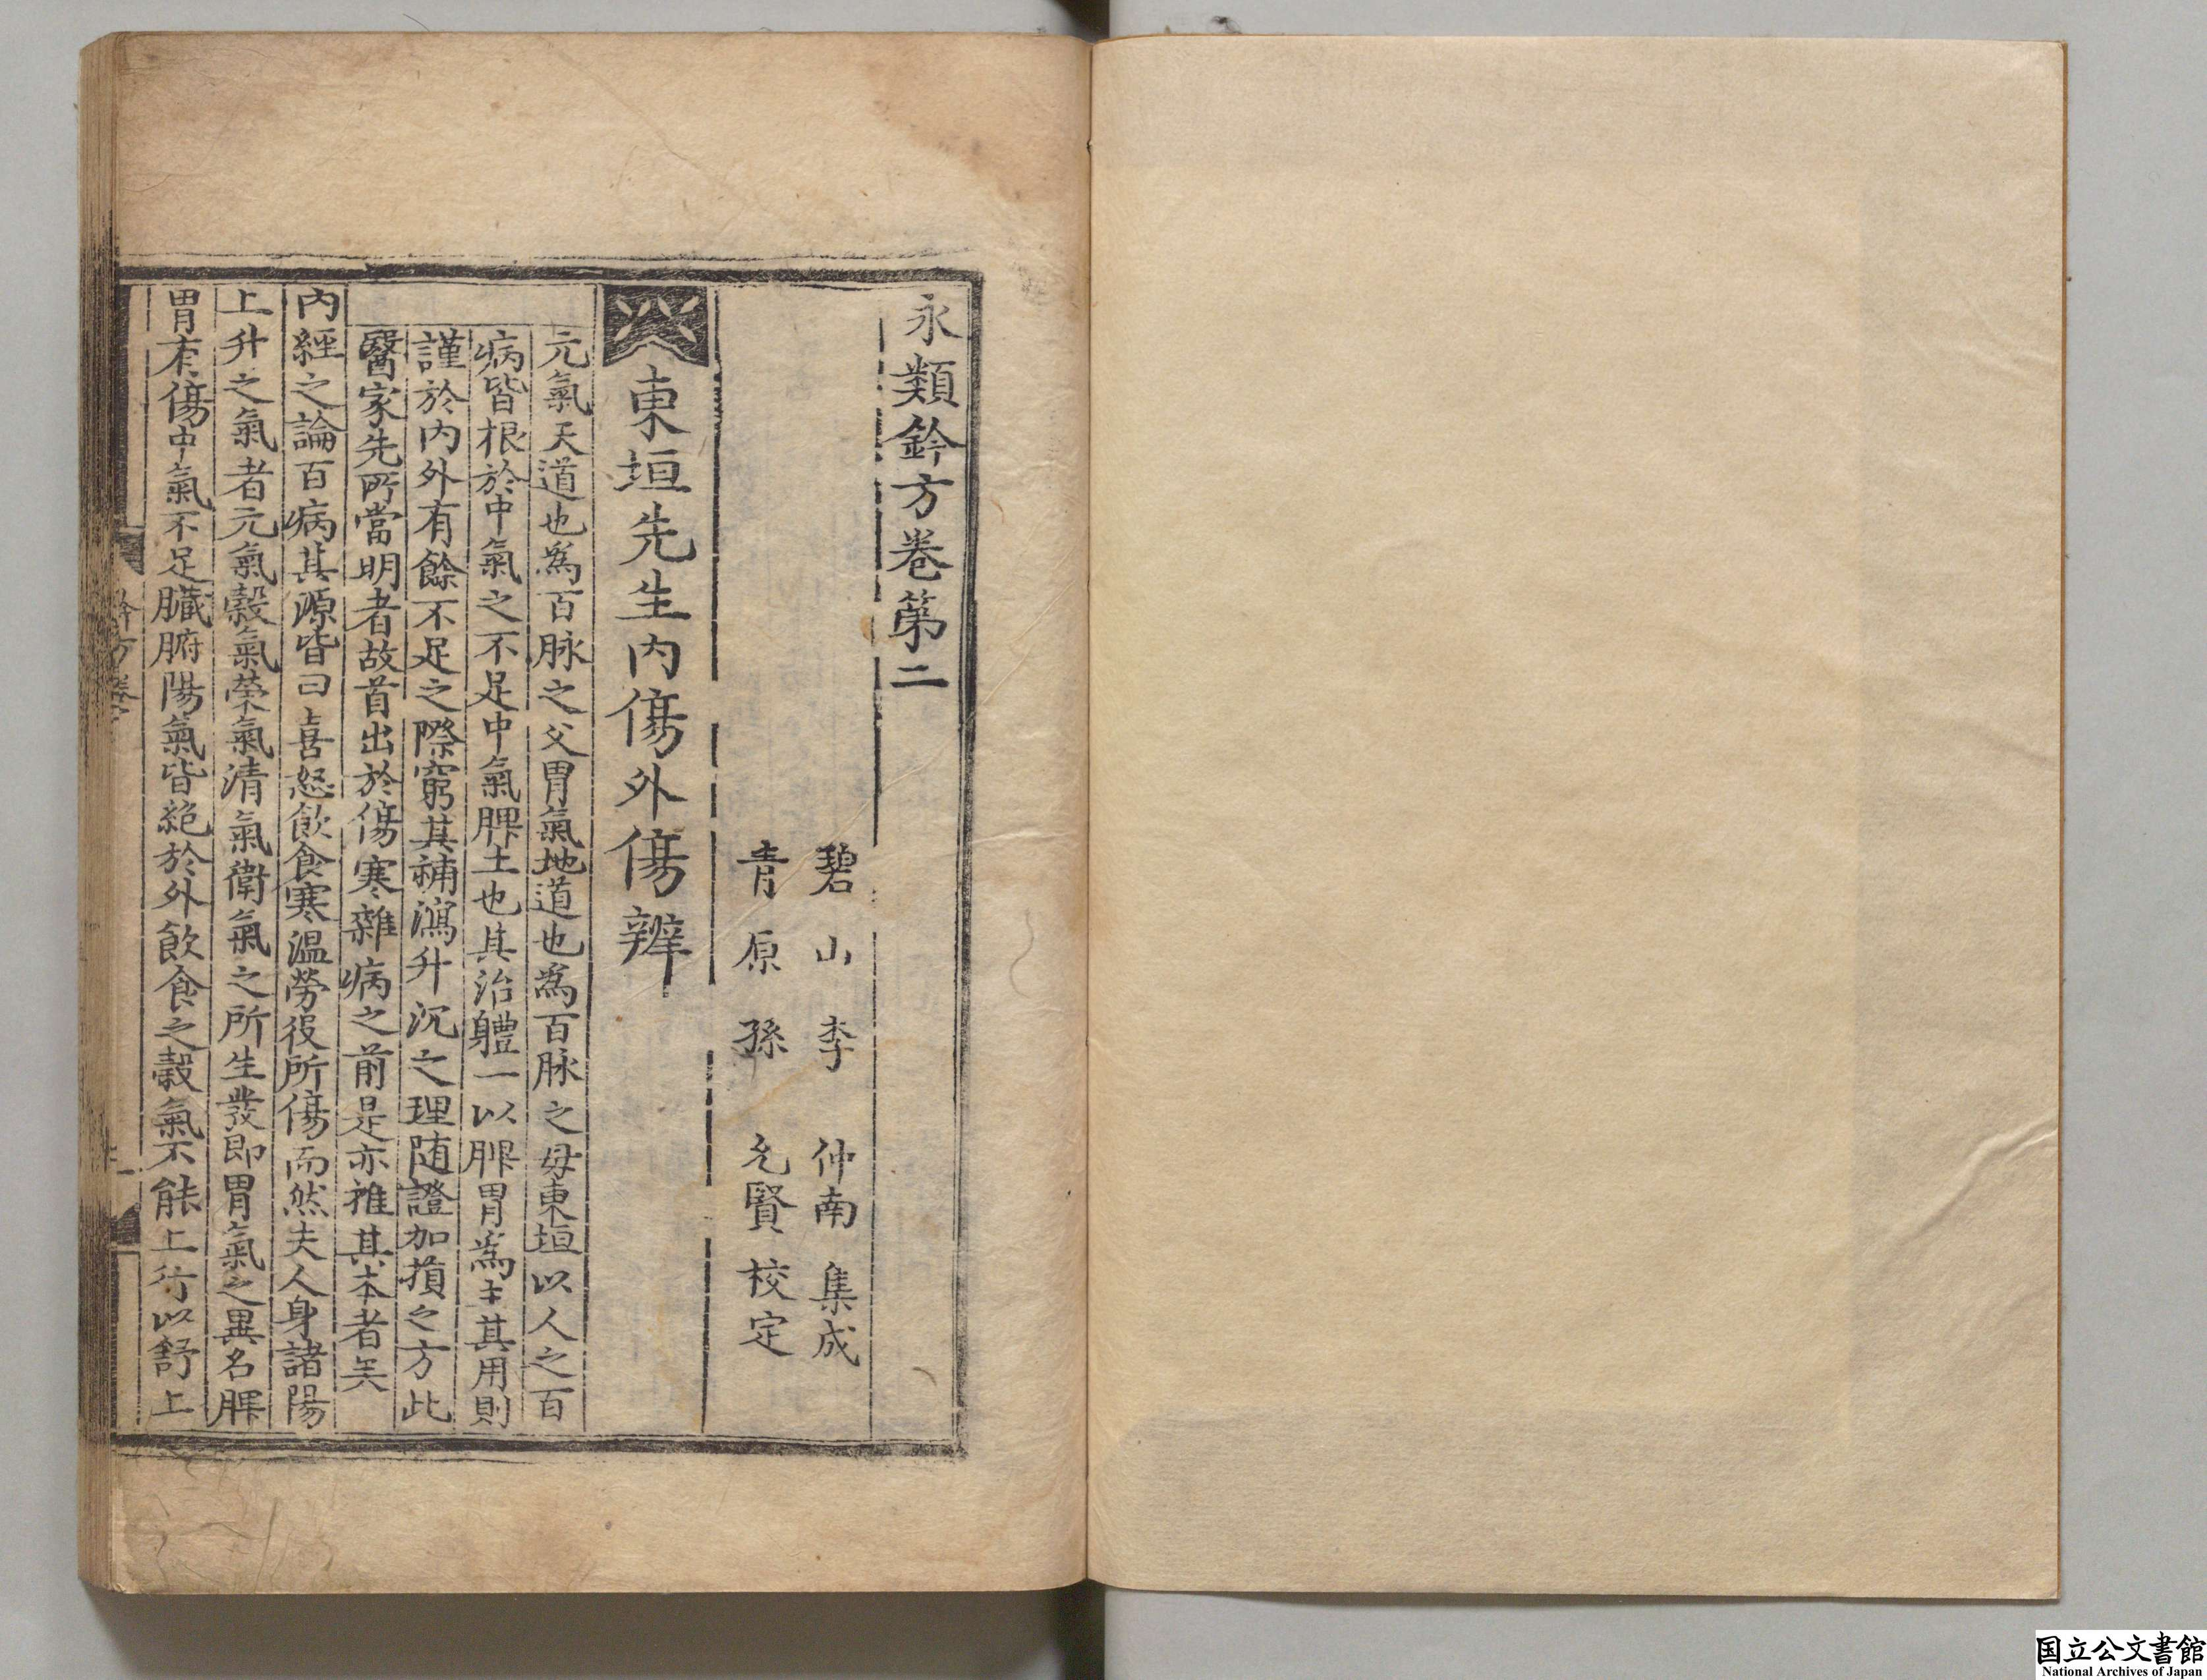 永類鈐方卷第二
碧山李仲南集成
青原孫允賢校定
東垣先生內傷外傷辨
元氣天道也為百脉之父胃氣地道也為百脉之母東垣以人之百
病皆根於中氣之不足中氣脾土也其治體一以脾胃為主其用則
謹於内外有餘不足之際窮其補瀉升沉之理随證加損之方此
醫家先所當明者故首出於傷寒雜病之前是亦推其本者矣
内經之論百病其源皆曰喜怒飲食寒温勞役所傷而然夫人身諸陽
上升之氣者元氣穀氣榮氣清氣衛氣之所生發即胃氣之異名脾
胃有傷中氣不足臟腑陽氣皆絶於外飲食之穀氣不能上行以舒上
鈐方卷
一
国立公文書館
National Archives of Japan